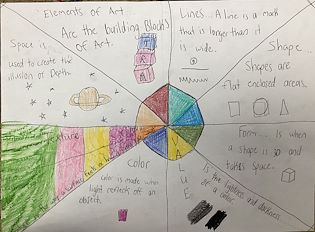 Elements of Art.
Are the building Blocks
of Art.
A
R
T
Lines... A line is a mark
that is longer than it
is wide.
Shape
Shapes are
flat enclosed areas.
Form... is when
a shape is 3D and
takes space.
VALUE
is the lightness and darkness
of a color.
Color
color is made when
light reflects off an
object.
Space is
used to create the
illusion of Depth.